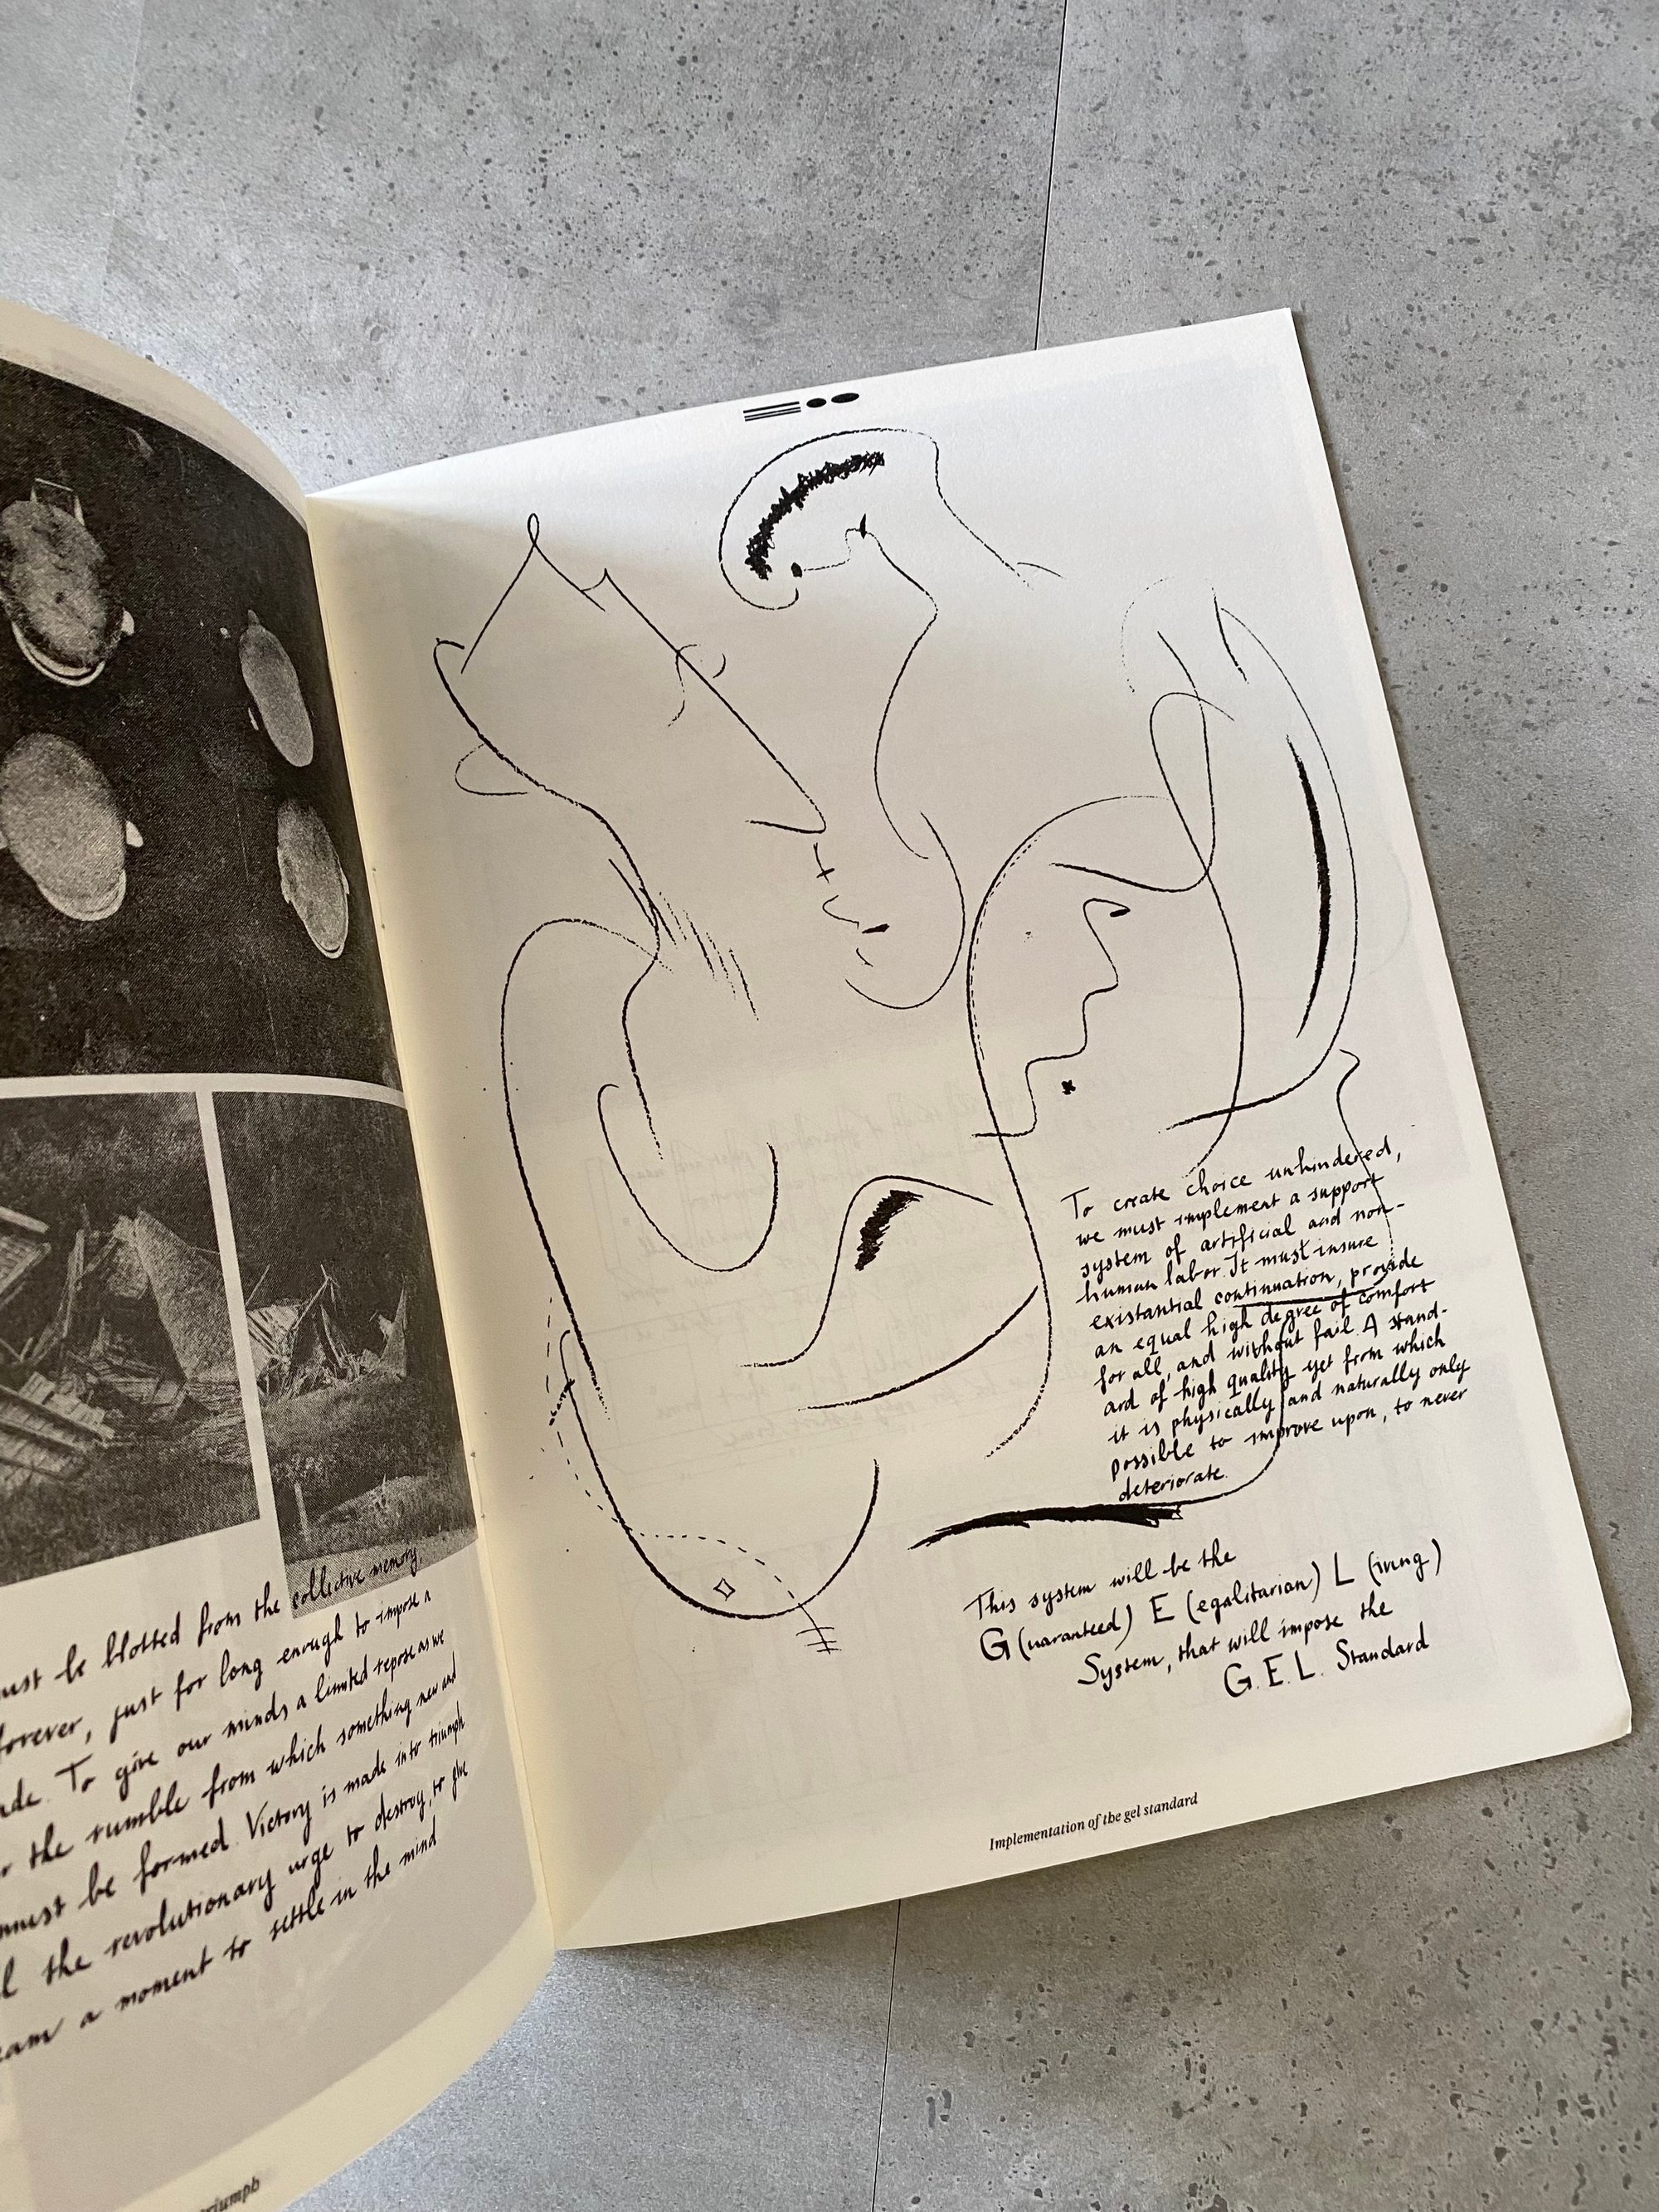 collective memory,
must be blotted from the
forever, just for long enough to impose a
To give our minds a limited repose as we
the rumble from which something new and
must be formed. Victory is made into triumph
the revolutionary urge to destroy, to give
a moment to settle in the mind
To create choice unhindered,
we must implement a support
system of artificial and non-
human labor. It must insure
existantial continuation, provide
an equal high degree of comfort
for all, and without fail. A stand-
ard of high quality yet from which
it is physically and naturally only
possible to improve upon, to never
deteriorate.
This system will be the
G(uaranteed) E (egalitarian) L (iving)
System, that will impose the
G.E.L. Standard
Implementation of the gel standard